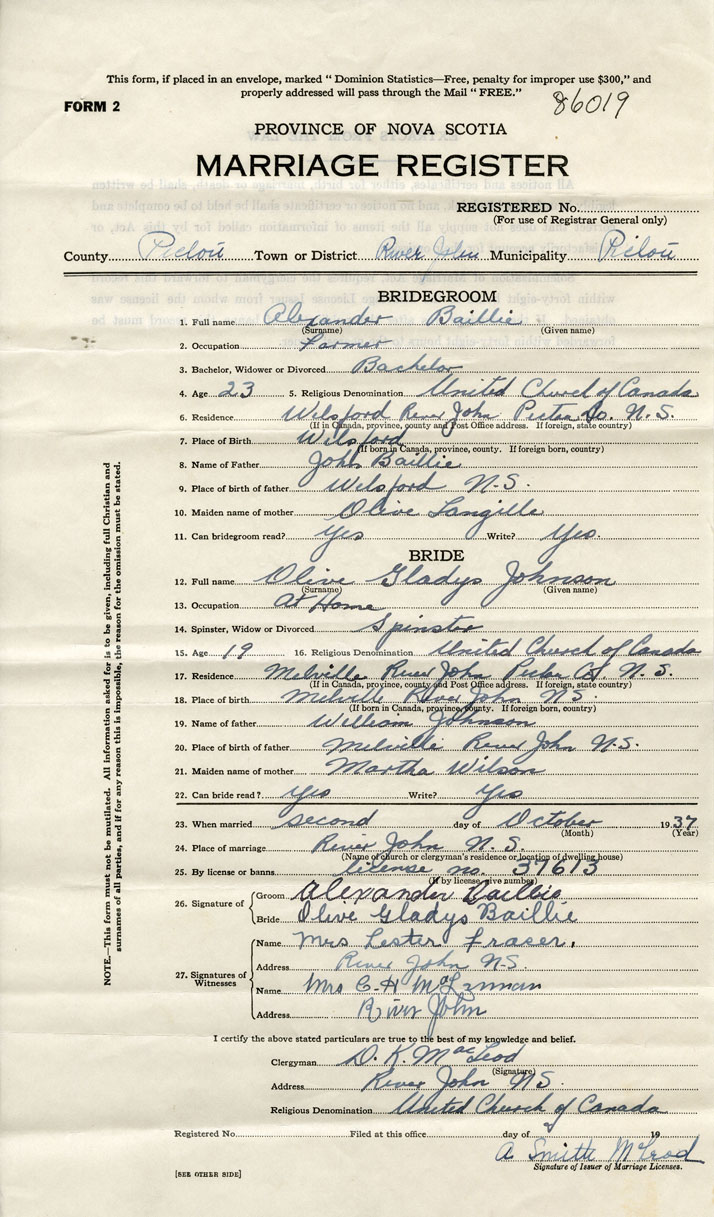 This form, if placed in an envelope, marked " Dominion Statistics—Free, penalty for improper use $300," and
properly addressed will pass through the Mail " FREE."
FORM 2
86019
PROVINCE OF NOVA SCOTIA
MARRIAGE REGISTER
REGISTERED No.
(For use of Registrar General only)
County Pictou Town or District River John Municipality Pictou
BRIDEGROOM
1. Full name Alexander Baillie
(Surname) (Given name)
2. Occupation Farmer
3. Bachelor, Widower or Divorced Bachelor
4. Age 23 5. Religious Denomination United Church of Canada
6. Residence Welsford River John Pictou Co. N.S.
(If in Canada, province, county and Post Office address. If foreign, state country)
7. Place of Birth Welsford
(If born in Canada, province, county. If foreign born, country)
8. Name of Father John Baillie
9. Place of birth of father Welsford N.S.
10. Maiden name of mother Olive Langille
11. Can bridegroom read? Yes Write? Yes.
BRIDE
12. Full name Olive Gladys Johnson
(Surname) (Given name)
13. Occupation At Home
14. Spinster, Widow or Divorced Spinster
15. Age 19 16. Religious Denomination United Church of Canada
17. Residence Melville River John Pictou Co. N.S.
(If in Canada, province, county and Post Office address. If foreign, state country)
18. Place of birth Melville River John N.S.
(If born in Canada, province, county. If foreign born, country)
19. Name of father William Johnson
20. Place of birth of father Melville River John N.S.
21. Maiden name of mother Martha Wilson
22. Can bride read? Yes Write? Yes
23. When married second day of October 1937
(Month) (Year)
24. Place of marriage River John N.S.
(Name of church or clergyman's residence or location of dwelling house)
25. By license or banns license no. 37613
(If by license, give number)
26. Signature of Groom Alexander Baillie
Bride Olive Gladys Baillie
27. Signatures of Witnesses
Name Mrs Lester Fraser,
Address River John N.S.
Name Mrs C. H
Address River John
I certify the above stated particulars are true to the best of my knowledge and belief.
Clergyman D. K. MacLeod
(Signature)
Address River John N.S.
Religious Denomination United Church of Canada
Registered No. Filed at this office day of 19
A Smith McLeod
Signature of Issuer of Marriage Licenses.
[SEE OTHER SIDE]
NOTE.—This form must not be mutilated. All information asked for is to be given, including full Christian and
surnames of all parties, and if for any reason this is impossible, the reason for the omission must be stated.